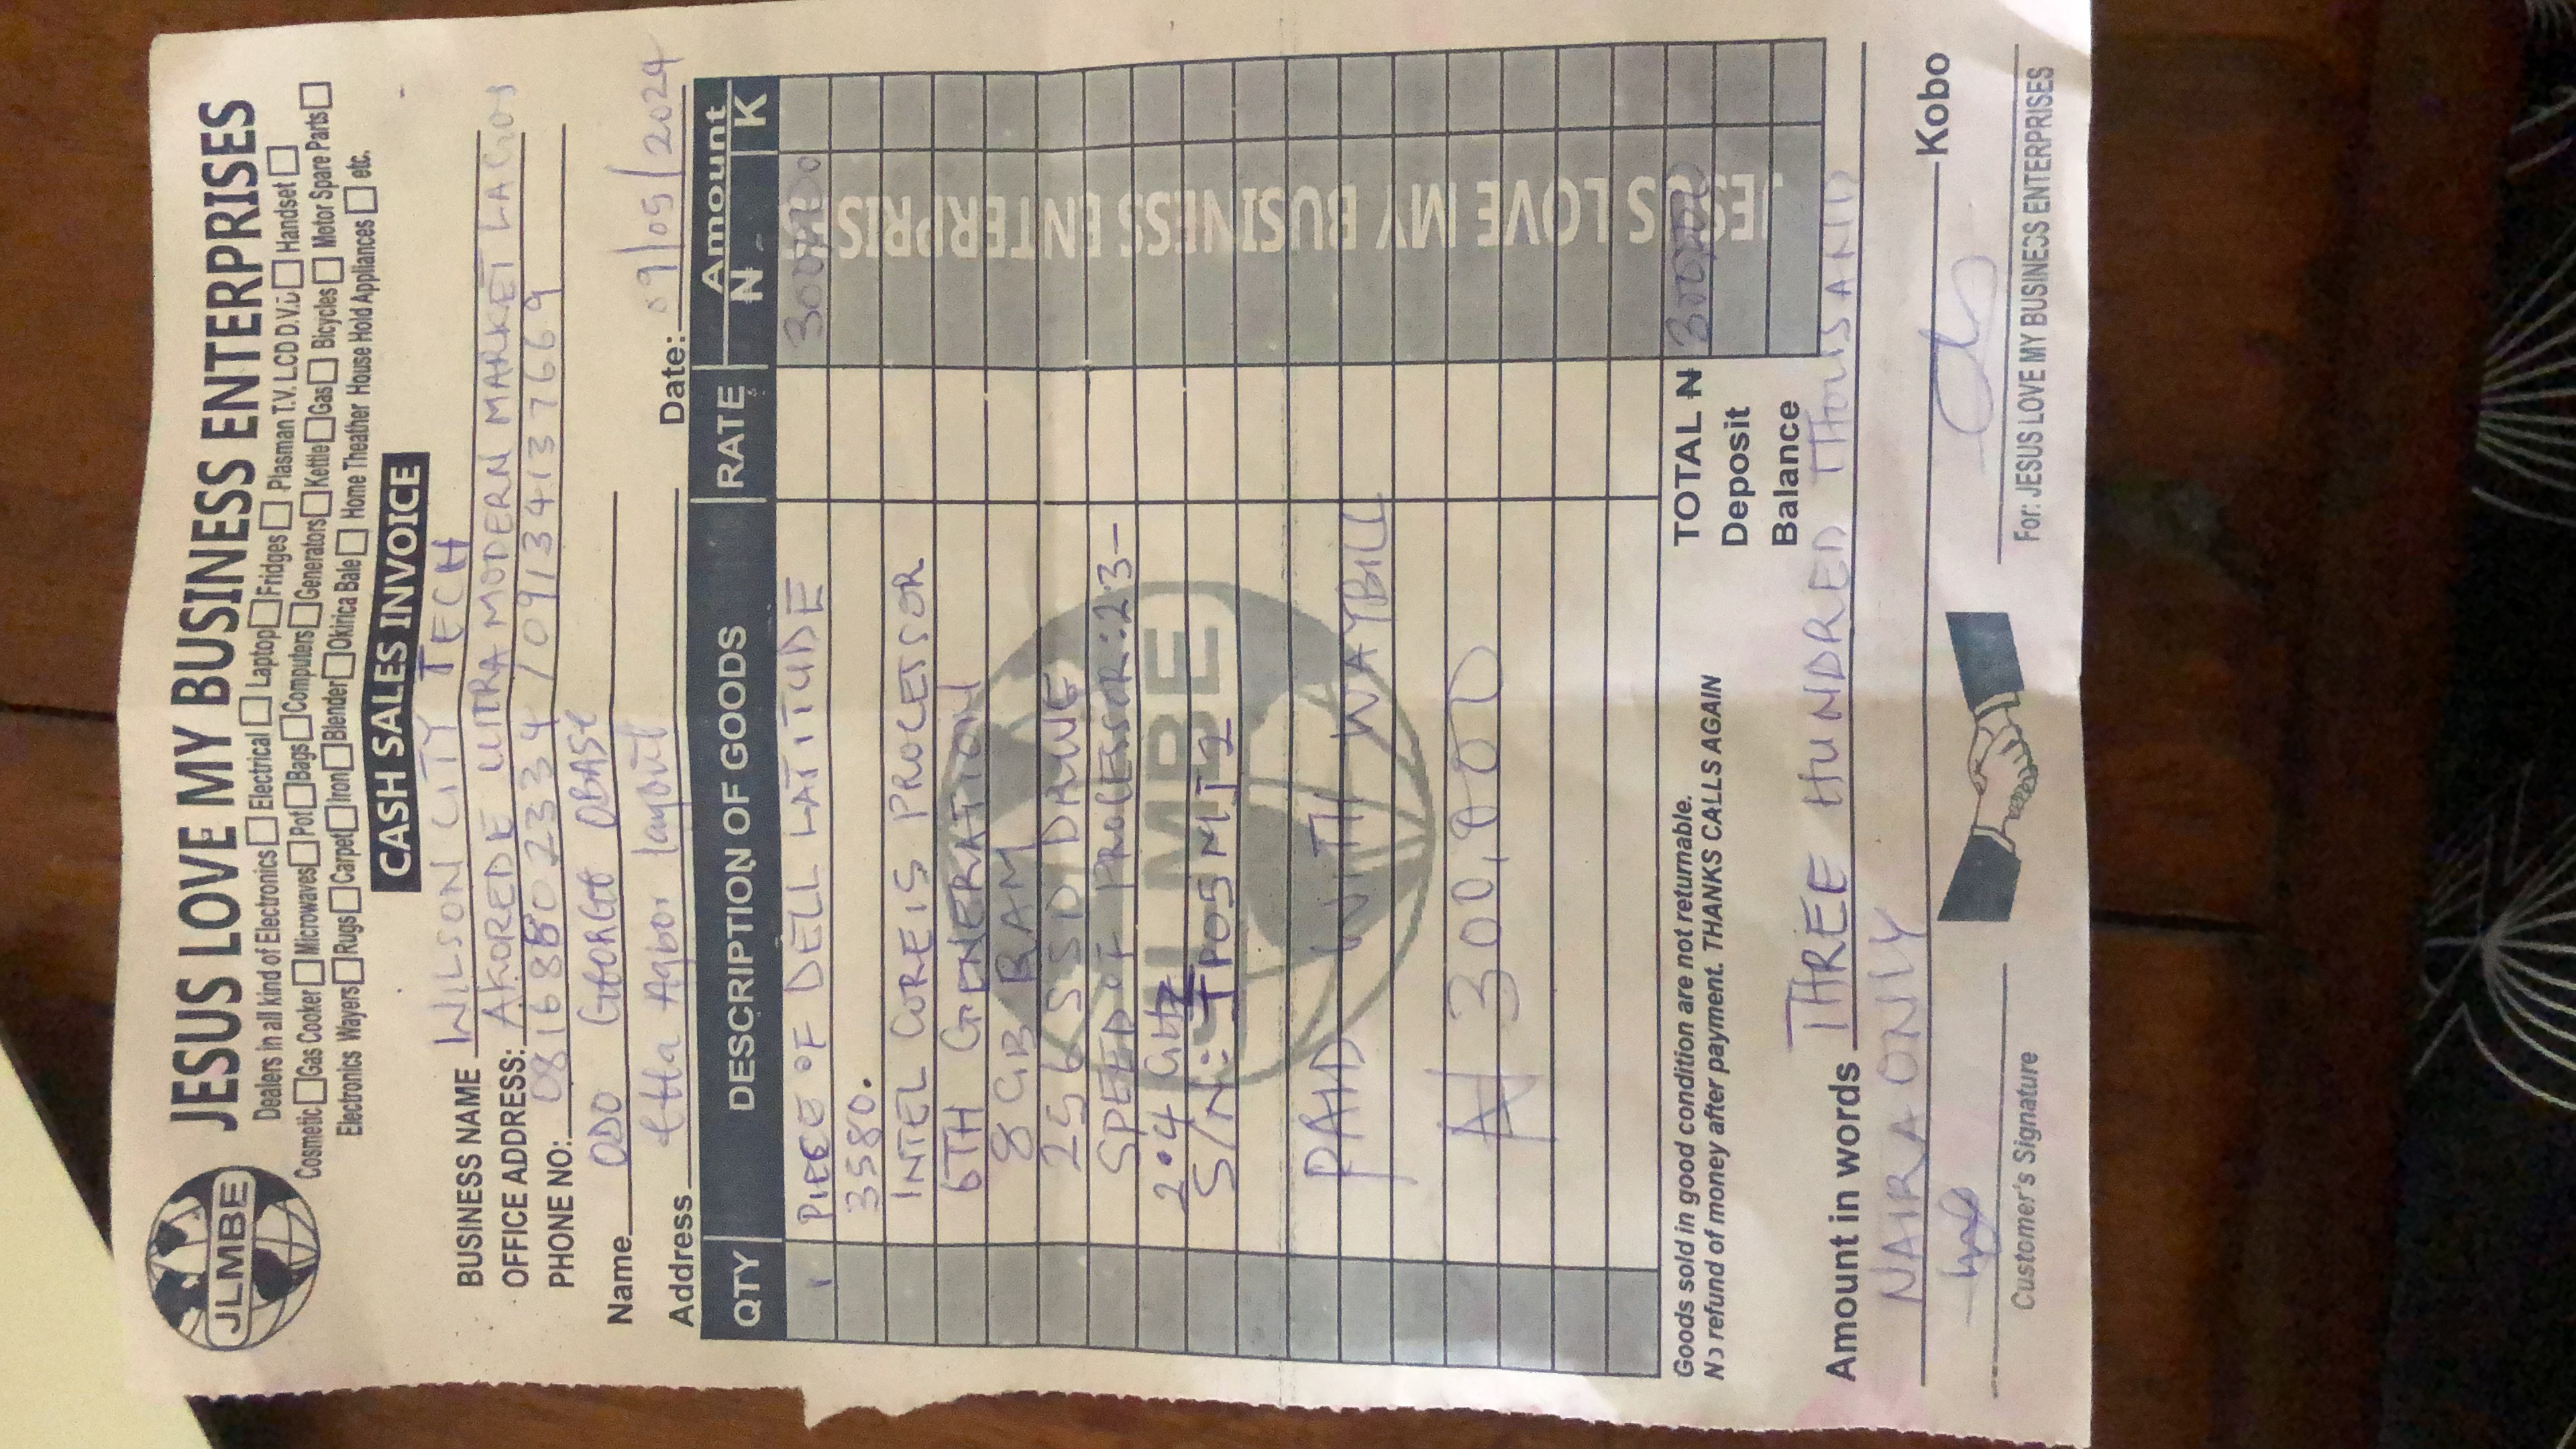 JLMBE
JESUS LOVE MY BUSINESS ENTERPRISES
Dealers in all kind of Electronics Electrical Laptop Fridges Plasman T.V. LCD D.V.D Handset
Cosmetic Gas Cooker Microwaves Pot Bags Computers Generators Kettle Gas Bicycles Motor Spare Parts
Electronics Wayers Rugs Carpet Iron Blender Okirica Bale Home Theather House Hold Appliances etc.
CASH SALES INVOICE
BUSINESS NAME WILSON CITY TECH
OFFICE ADDRESS: AKOREDE ULTRA MODERN MARKET LAGOS
PHONE NO: 08168802334 / 09134137669
Name ODO GEORGE OBASE
Address Etta Agbor layout Date: 09/05/2024
QTY DESCRIPTION OF GOODS RATE Amount
₦ K
1 PIECE OF DELL LATITUDE 300,000
3580.
INTEL CORE i5 PROCESSOR
6TH GENERATION
8GB RAM
256 SSD DRIVE
SPEED OF PROCESSOR: 2.3-
2.4 GHz
S/N: JP05MJ2
JLMBE
PAID WITH WAYBILL
₦ 300,000
JESUS LOVE MY BUSINESS ENTERPRISES
Goods sold in good condition are not returnable.
No refund of money after payment. THANKS CALLS AGAIN
TOTAL ₦ 300,000
Deposit
Balance
Amount in words THREE HUNDRED THOUSAND
NAIRA ONLY Kobo
Customer's Signature
For: JESUS LOVE MY BUSINESS ENTERPRISES